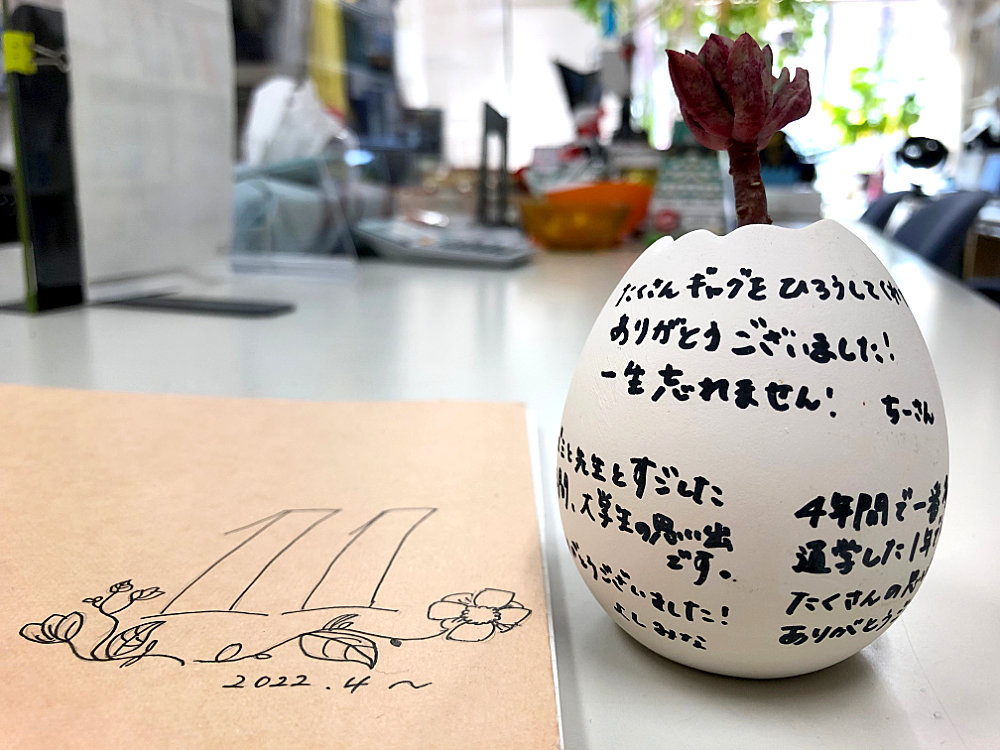 11
2022.4〜
たくさん ギャグを ひろうしてくれ
ありがとう ございました!
一生 忘れません!
ちーさん
こと先生と すごした
間、大学生の思い出
です。
とうございました!
よしみな
4年間で一番
通学した1年
たくさんの思
ありがとうご